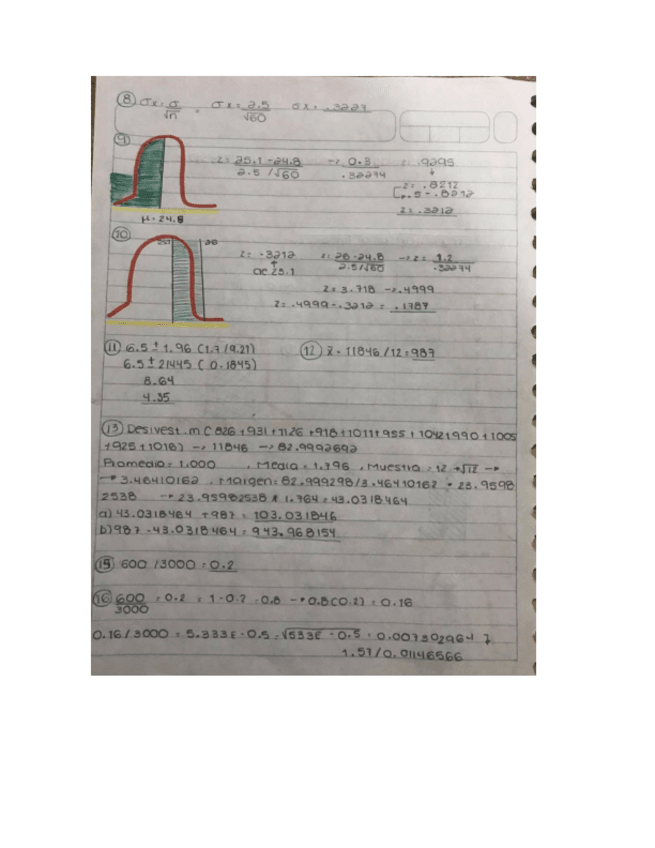 8 σx = σ/√n = σx = 2.5/√60 σx = .3227
9 z = 25.1 - 24.8 / 2.5/√60 → 0.3 / .32274 z: .9295
z = .8212
.5 - .8212
z = .3212
μ = 24.8
10 251 26
z = .3212 z = 26 - 24.8 / 2.5/√60 → z = 1.2 / .32274
de 25.1
z = 3.718 → .4999
z = .4999 - .3212 = .1787
11 6.5 ± 1.96 (1.7/9.21) 12 x̄ = 11846/12 = 987
6.5 ± 21445 (0.1845)
8.64
4.35
13 Desvest.m (826 + 931 + 1126 + 918 + 1011 + 955 + 1042 + 990 + 1005
+ 925 + 1016) → 11846 → 82.9992692
Promedio = 1.000 , Media = 1.796 , Muestra = 12 → √12 →
→ 3.46410162 , Margen = 82.999298/3.46410162 = 23.9598
2538 → 23.95982538 x 1.764 = 43.0318464
a) 43.0318464 + 987 = 103.031846
b) 987 - 43.0318464 = 943.968154
15 600/3000 = 0.2
16 600/3000 = 0.2 = 1 - 0.2 = 0.8 → 0.8(0.2) = 0.16
0.16/3000 = 5.333E - 0.5 = √533E - 0.5 = 0.007302964
1.57/0.01146566